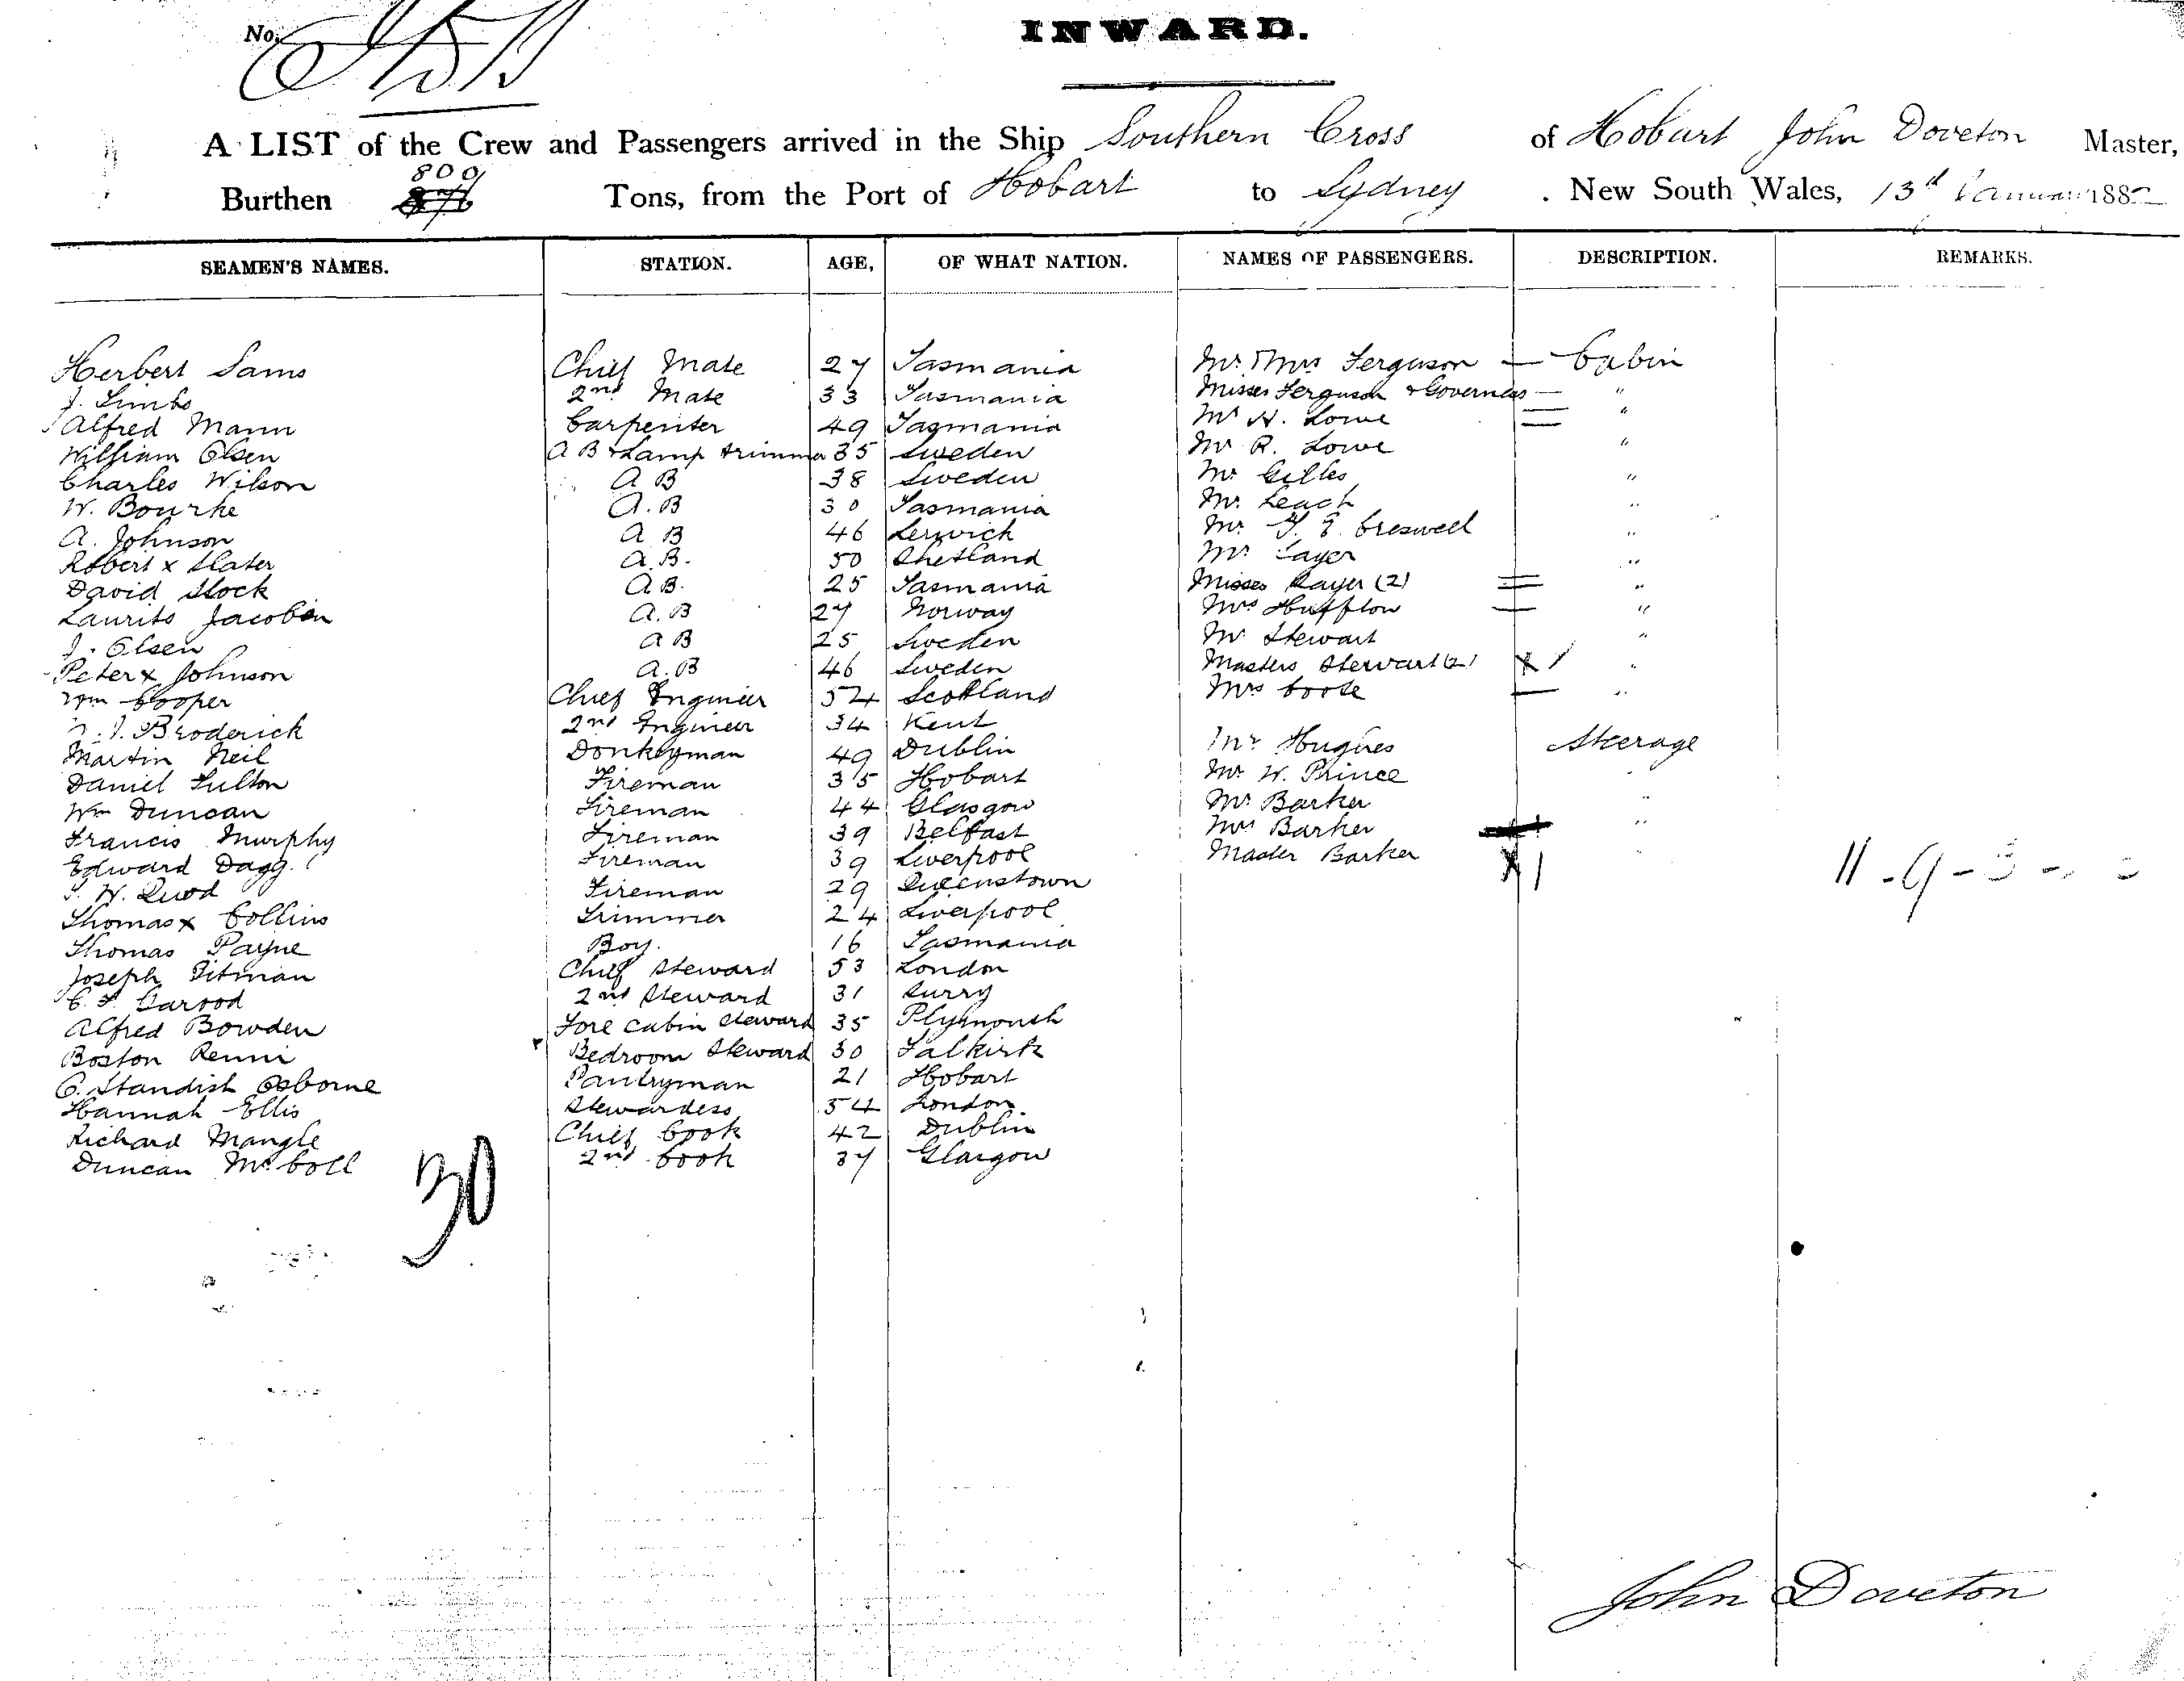 No.
INWARD.
A LIST of the Crew and Passengers arrived in the Ship Southern Cross of Hobart John Doveton Master,
Burthen 800 Tons, from the Port of Hobart to Sydney. New South Wales, 13th January 188
SEAMEN'S NAMES. STATION. AGE, OF WHAT NATION. NAMES OF PASSENGERS. DESCRIPTION. REMARKS.
Herbert Sams Chief Mate 27 Tasmania Mr & Mrs Ferguson — Cabin
J. Limbo 2nd Mate 33 Tasmania Misses Ferguson & Governess — "
Alfred Mann Carpenter 49 Tasmania Mr H. Lowe "
William Olsen A B & Lamp trimmer 35 Sweden Mr R. Lowe "
Charles Wilson A B 38 Sweden Mr Gilles "
W. Bourke A.B 30 Tasmania Mr. Leach "
A. Johnson A B 46 Lerwick Mr Creswell "
Robert x Slater A.B. 50 Shetland Mr Layer "
David Stock A B. 25 Tasmania Misses Layer (2) "
Laurits Jacobsen A.B 27 Norway Mrs Huffton — "
J. Olsen A B 25 Sweden Mr Stewart "
Peter x Johnson A.B 46 Sweden Masters Stewart (2) x 1 "
Wm Cooper Chief Engineer 54 Scotland Mrs Coote — "
Broderick 2nd Engineer 34 Kent
Martin Neil Donkeyman 49 Dublin Mr Hughes Steerage
Daniel Fulton Fireman 35 Hobart Mr W. Prince "
Wm Duncan Fireman 44 Glasgow Mr Barker "
Francis Murphy Fireman 39 Belfast Mrs Barker "
Edward Dagg. Fireman 39 Liverpool Master Barker x 1 "
W. Quod Fireman 29 Queenstown
Thomas x Collins Trimmer 24 Liverpool
Thomas Payne Boy. 16 Tasmania
Joseph Pitman Chief Steward 53 London
Garrod 2nd Steward 31 Surry
Alfred Bowden Fore Cabin Steward 35 Plymouth
Boston Renni Bedroom Steward 30 Falkirk
Standish Osborne Pantryman 21 Hobart
Hannah Ellis Stewardess 54 London
Richard Mangle Chief Cook 42 Dublin
Duncan McColl 2nd Cook 37 Glasgow
30
John Doveton